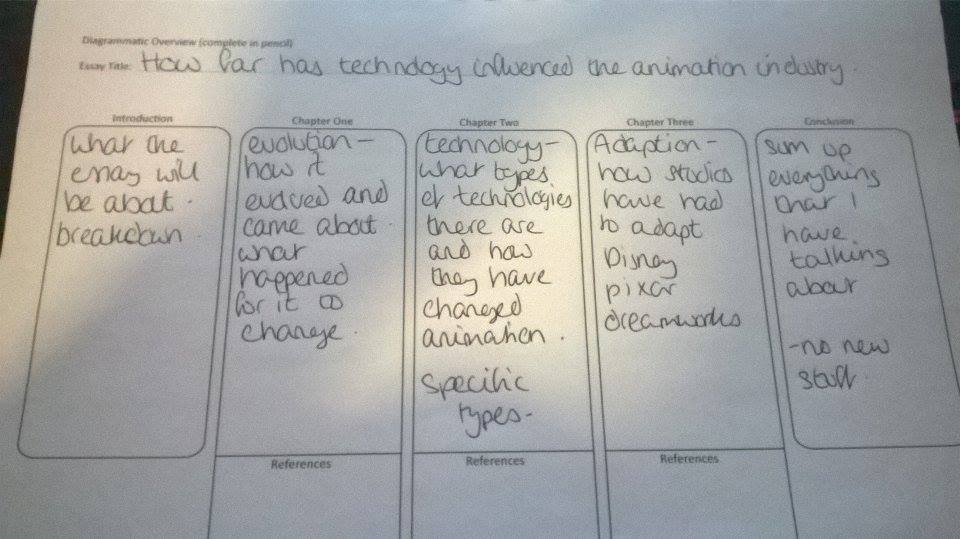 Diagrammatic Overview (complete in pencil)
Essay Title: How far has technology influenced the animation industry.
Introduction
what the
essay will
be about.
breakdown
Chapter One
evolution -
how it
evolved and
came about.
what
happened
for it to
change.
References
Chapter Two
technology -
what types
of technologies
there are
and how
they have
changed
animation.
specific
types-
References
Chapter Three
Adaption -
how studios
have had
to adapt
Disney
pixar
dreamworks
References
Conclusion
sum up
everything
that I
have
talking
about
-no new
stuff.